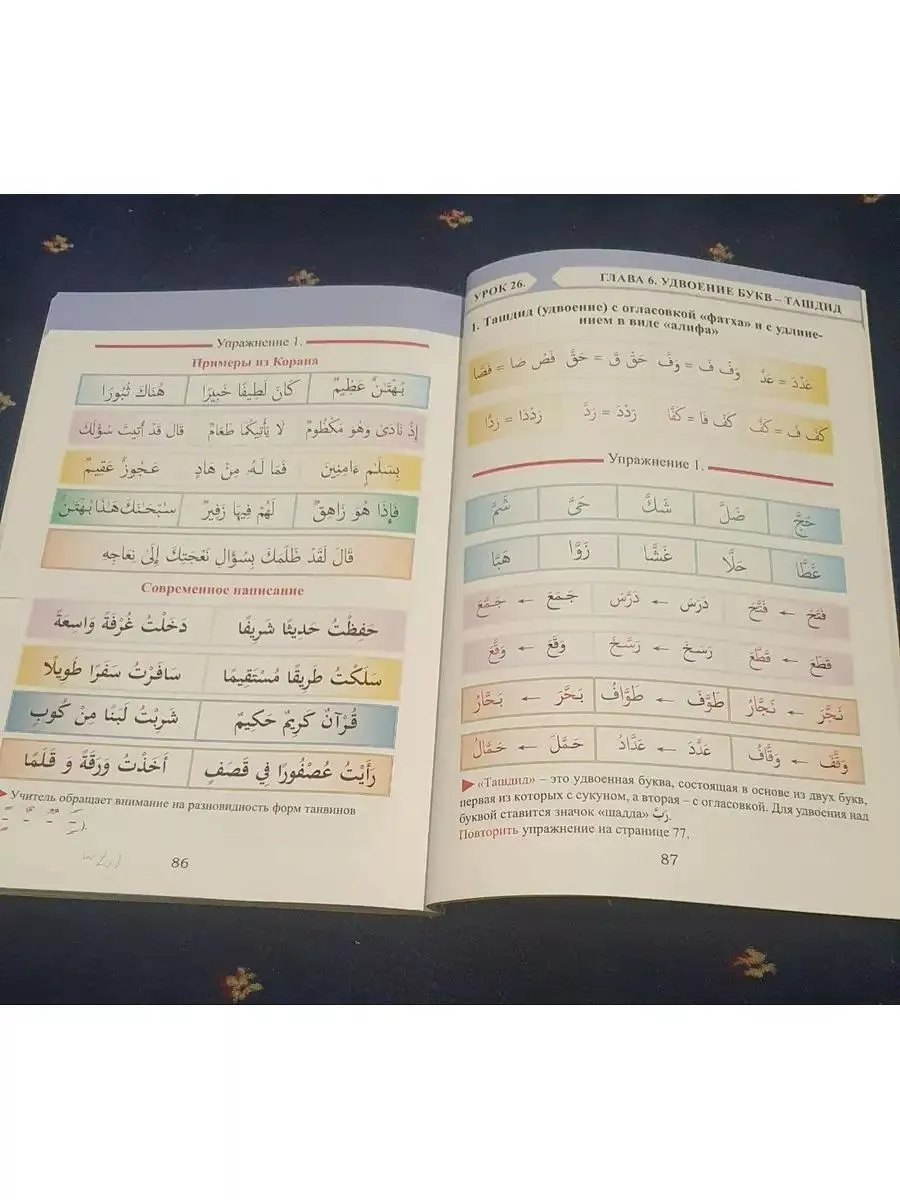 Упражнение 1.
Примеры из Корана
بُهْتَـٰنٌ عَظِيمٌ كَانَ لَطِيفًا خَبِيرًا هُنَالِكَ ثُبُورًا
إِذْ نَادَىٰ وَهُوَ مَكْظُومٌ لَا يَأْتِيكُمَا طَعَامٌ قَالَ قَدْ أُتِيتَ سُؤْلَكَ
بِسَلَـٰمٍ ءَامِنِينَ فَمَا لَهُۥ مِنْ هَادٍ عَجُوزٌ عَقِيمٌ
فَإِذَا هُوَ زَاهِقٌ لَهُمْ فِيهَا زَفِيرٌ سُبْحَـٰنَكَ هَـٰذَا بُهْتَـٰنٌ
قَالَ لَقَدْ ظَلَمَكَ بِسُؤَالِ نَعْجَتِكَ إِلَىٰ نِعَاجِهِ
Современное написание
حَفِظْتُ حَدِيثًا شَرِيفًا دَخَلْتُ غُرْفَةً وَاسِعَةً
سَلَكْتُ طَرِيقًا مُسْتَقِيمًا سَافَرْتُ سَفَرًا طَوِيلًا
قُرْآنٌ كَرِيمٌ حَكِيمٌ شَرِبْتُ لَبَنًا مِنْ كُوبٍ
رَأَيْتُ عُصْفُورًا فِي قَصَفٍ أَخَذْتُ وَرَقَةً وَ قَلَمًا
Учитель обращает внимание на разновидность форм танвинов
86
УРОК 26.
ГЛАВА 6. УДВОЕНИЕ БУКВ – ТАШДИД
1. Ташдид (удвоение) с огласовкой «фатха» и с удлине-
нием в виде «алифа»
عَدْدَ = عَدَّ وَفْ فَ = وَفَّ حَقْ قَ = حَقَّ فَصْ صَا = فَصَّا
كَفْ فَ = كَفَّ كَفْ فَا = كَفَّا رَدْدَ = رَدَّ رَدْدَا = رَدَّا
Упражнение 1.
حَجَّ ضَلَّ شَكَّ حَىَّ شَمَّ
غَطَّا حَلَّا غَشَّا زَوَّا هَبَّا
فَتَحَ ← فَتَّحَ دَرَسَ ← دَرَّسَ جَمَعَ ← جَمَّعَ
قَطَعَ ← قَطَّعَ رَسَخَ ← رَسَّخَ وَقَعَ ← وَقَّعَ
نَجَّرَ ← نَجَّارُ طَوَّفَ ← طَوَّافُ بَحَّرَ ← بَحَّارُ
وَقَّفَ ← وَقَّافُ عَدَّدَ ← عَدَّادُ حَمَّلَ ← حَمَّالُ
«Ташдид» – это удвоенная буква, состоящая в основе из двух букв,
первая из которых с сукуном, а вторая – с огласовкой. Для удвоения над
буквой ставится значок «шадда» رَبَّ.
Повторить упражнение на странице 77.
87